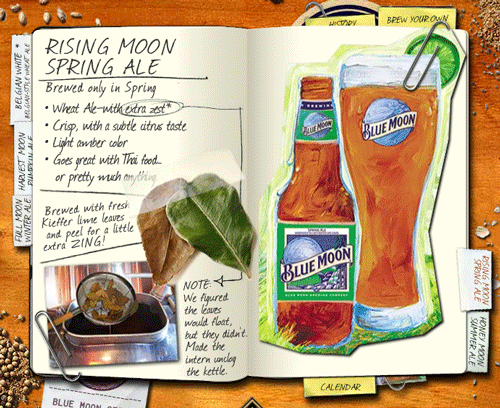 HISTORY
BREW YOUR OWN
BELGIAN WHITE *
BELGIAN-STYLE WHEAT ALE
HARVEST MOON
PUMPKIN ALE
FULL MOON
WINTER ALE
RISING MOON
SPRING ALE
Brewed only in Spring
• Wheat Ale with extra zest*
• Crisp, with a subtle citrus taste
• Light amber color
• Goes great with Thai food...
or pretty much anything
Brewed with fresh
Kieffer lime leaves
and peel for a little
extra ZING!
NOTE:
We figured
the leaves
would float,
but they didn't.
Made the
intern unclog
the kettle.
BREWING
BLUE MOON
SPRING ALE
BLUE MOON
BLUE MOON BREWING COMPANY
BLUE MOON
RISING MOON
SPRING ALE
HONEY MOON
SUMMER ALE
CALENDAR
BLUE MOON